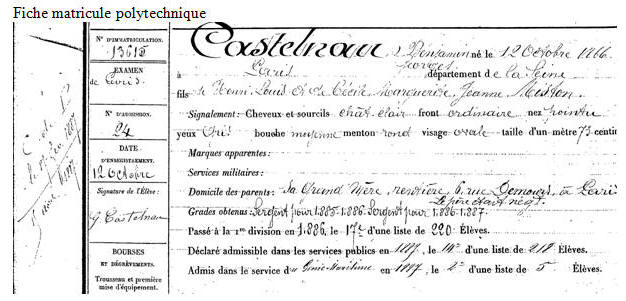 Fiche matricule polytechnique
N° D'IMMATRICULATION.
13615
EXAMEN
de Paris.
N° D'ADMISSION.
24
DATE
D'ENREGISTREMENT.
12 Octobre
Signature de l'Élève:
G. Castelnau
BOURSES
ET DÉGRÈVEMENTS.
Trousseau et première
mise d'équipement.
Castelnau, Benjamin né le 12 Octobre 1866
Georges
à Paris département de la Seine
fils de Henri Louis et de Cécile Marguerite Jeanne
Signalement: Cheveux et sourcils chât. clair front ordinaire nez pointu
yeux Gris bouche moyenne menton rond visage ovale taille d'un mètre 73 centi
Marques apparentes:
Services militaires:
Domicile des parents: Sa Grand Mère, rentière, 6, rue Demours, à Paris
Le père était négt.
Grades obtenus: Sergent pour 1885-1886. Sergent pour 1886-1887.
Passé à la 1re division en 1886, le 17e d'une liste de 220 Élèves.
Déclaré admissible dans les services publics en 1887, le 14e d'une liste de 218 Élèves.
Admis dans le service du Génie Maritime en 1887, le 2e d'une liste de 5 Élèves.